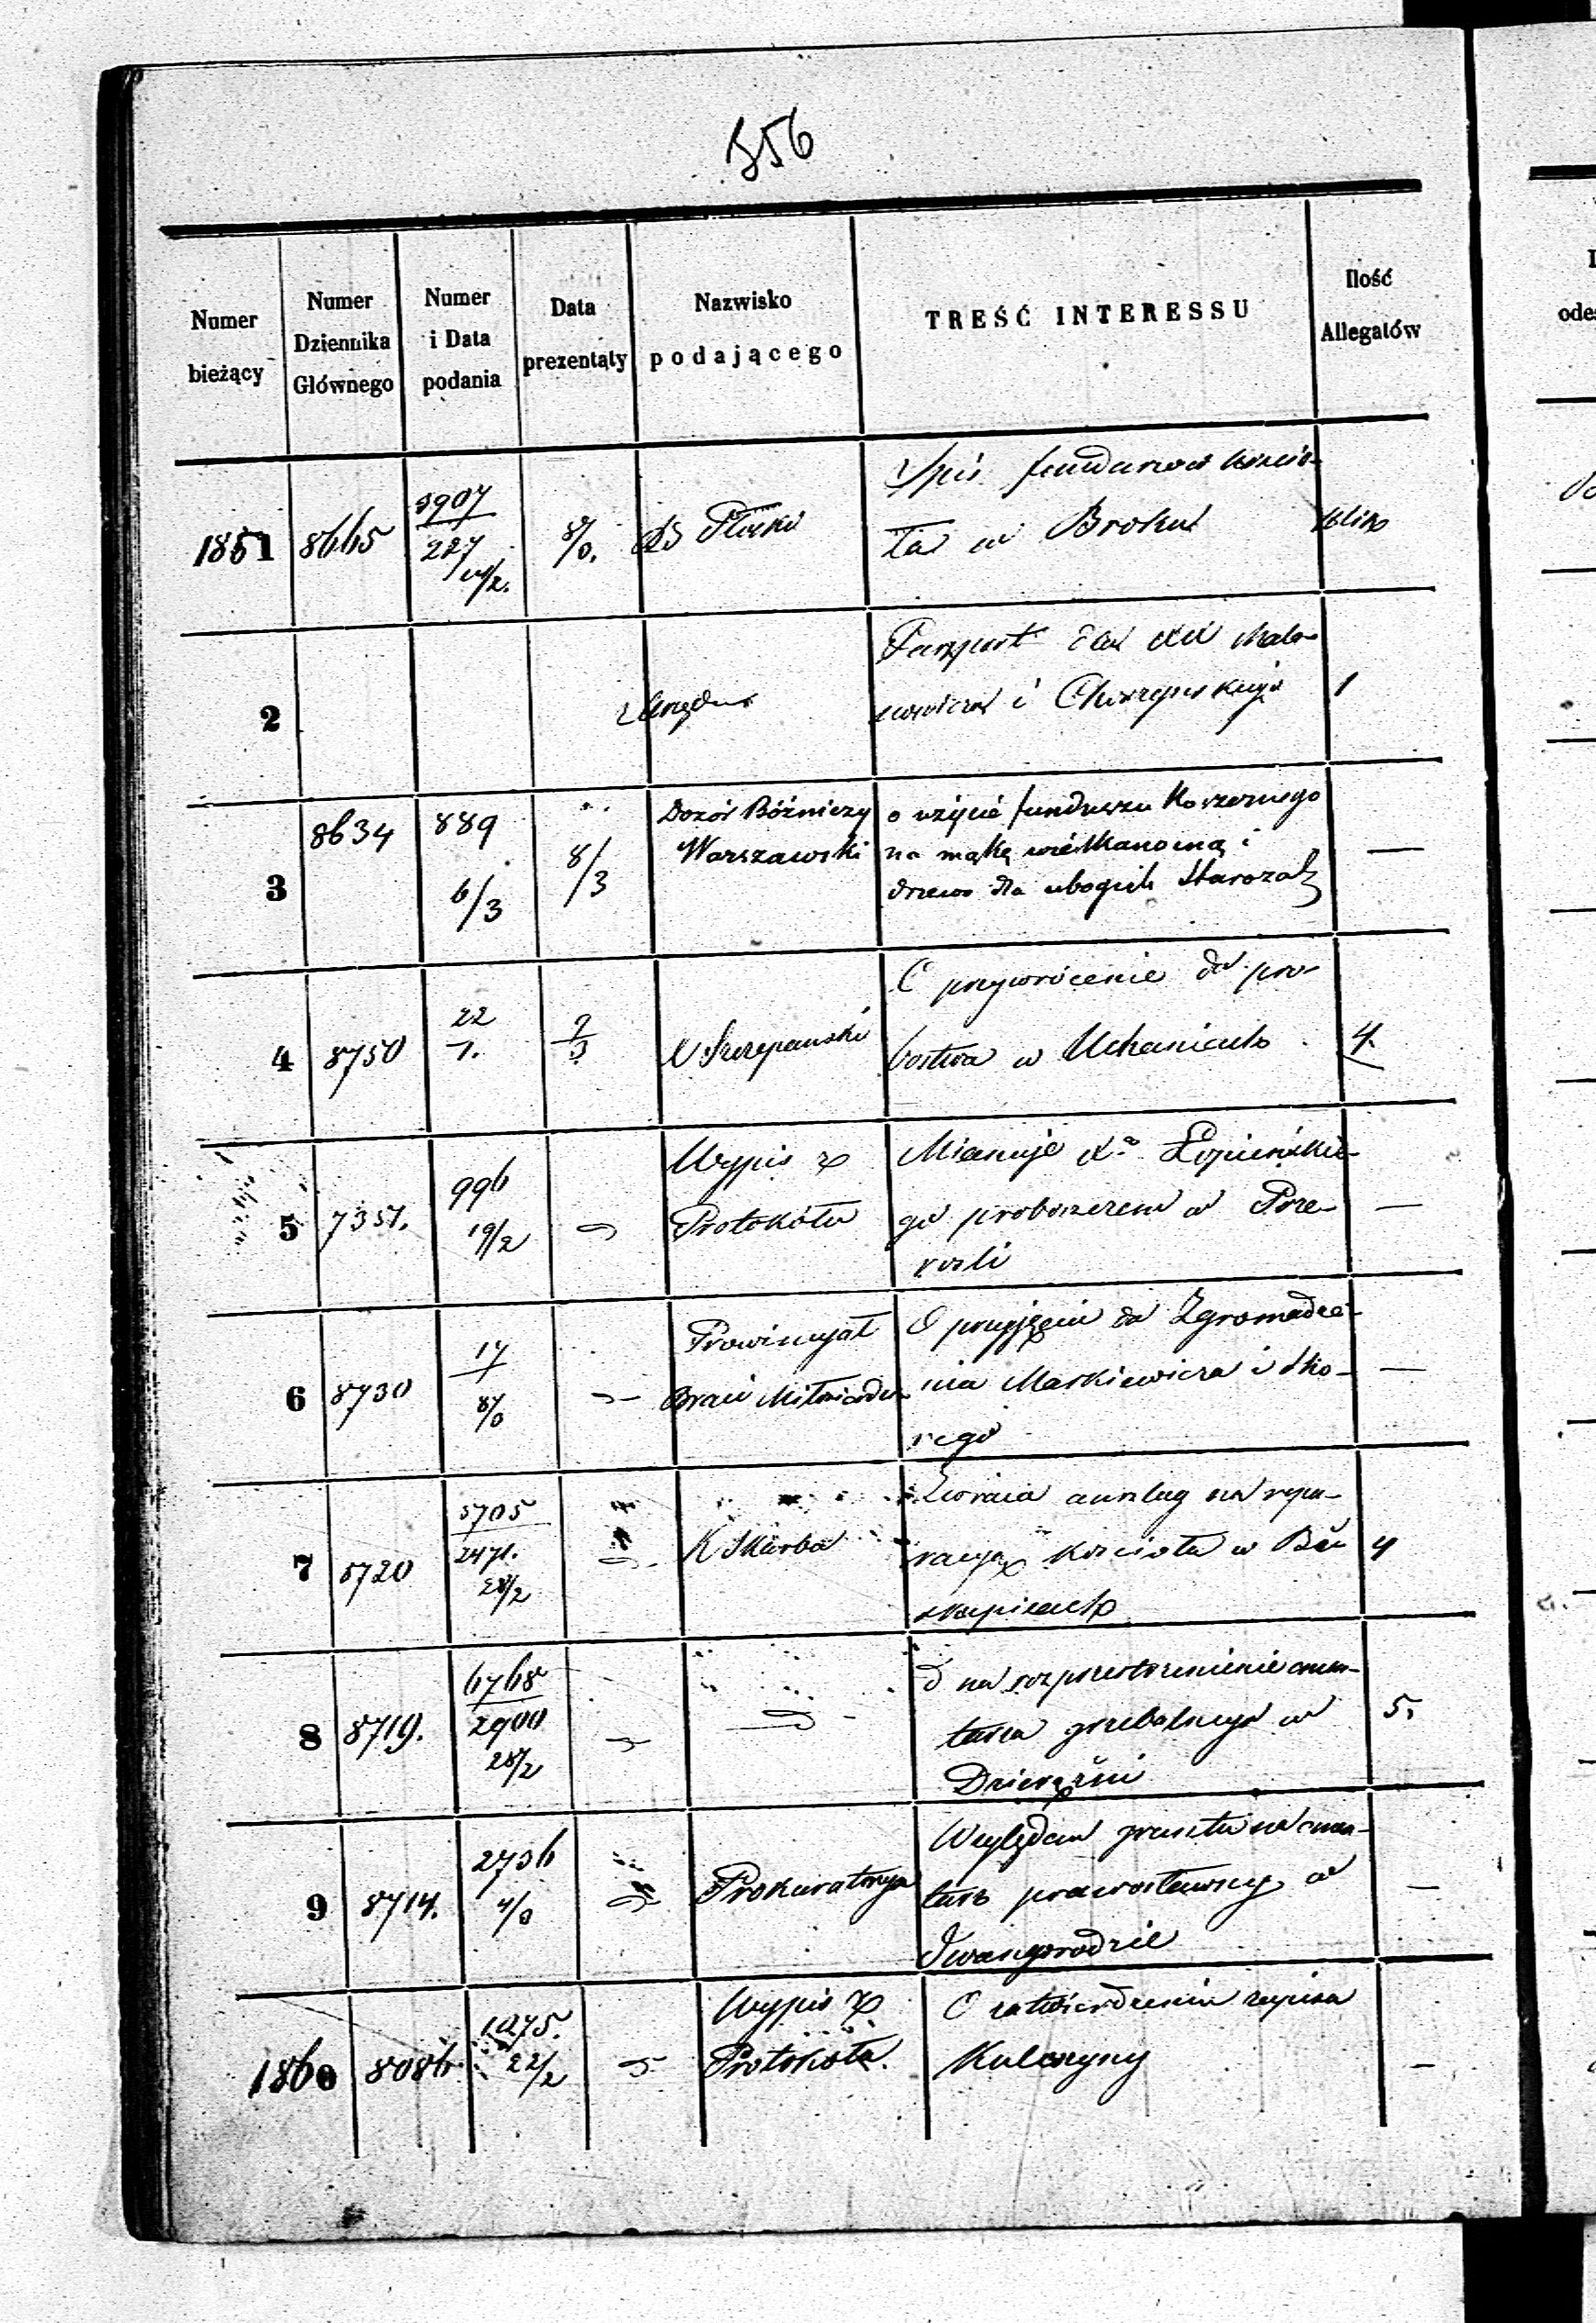 356
Numer bieżący
Numer Dziennika Głównego
Numer i Data podania
Data prezentąty
Nazwisko podającego
TREŚĆ INTERESSU
Ilość Allegatów
1851 8665 3907 227 8/3. Płocki
Spis funduszów kościo-
ła w Broku
2
z Urzędu
Paszport dla XX
i 1
3 8634 889 6/3 8/3
Dozór Bóżniczy
Warszawski
o użycie funduszu Koszernego
na mąkę wielkanocną i
drzewo dla ubogich Staroza
—
4 8750 22 9/3
X Szczepański
O przywrócenie do pro-
bostwa w Uchaniach
4.
5 7351. 996 19/2
Wypis z
Protokółu
Mianuje Xa Łopieńskie-
go proboszczem w Prze-
rośli
—
6 8730 17 8/3
Prowincyał
Braci Miłosierdz
O przyjęciu do Zgromadze-
nia Markiewicza i Sko-
rego
—
7 8720 5705 2471. 28/2
K Skarbu
Zwraca anszlag na repa-
racyą kościoła w Bi
skupicach
4
8 8719. 6768 2900 28/2
d na rozprzestrzenienie cmen-
tarza grzebalnego w
Dzierążni
5,
9 8714. 2736 4/3
Prokuratorya
Względem gruntu na cmen-
tarz prawosławny w
Iwangorodzie
—
1860 8086 1075. 22/2
Wypis z
Protokółu.
O zatwierdzeniu zapisu
Kulczyny
—